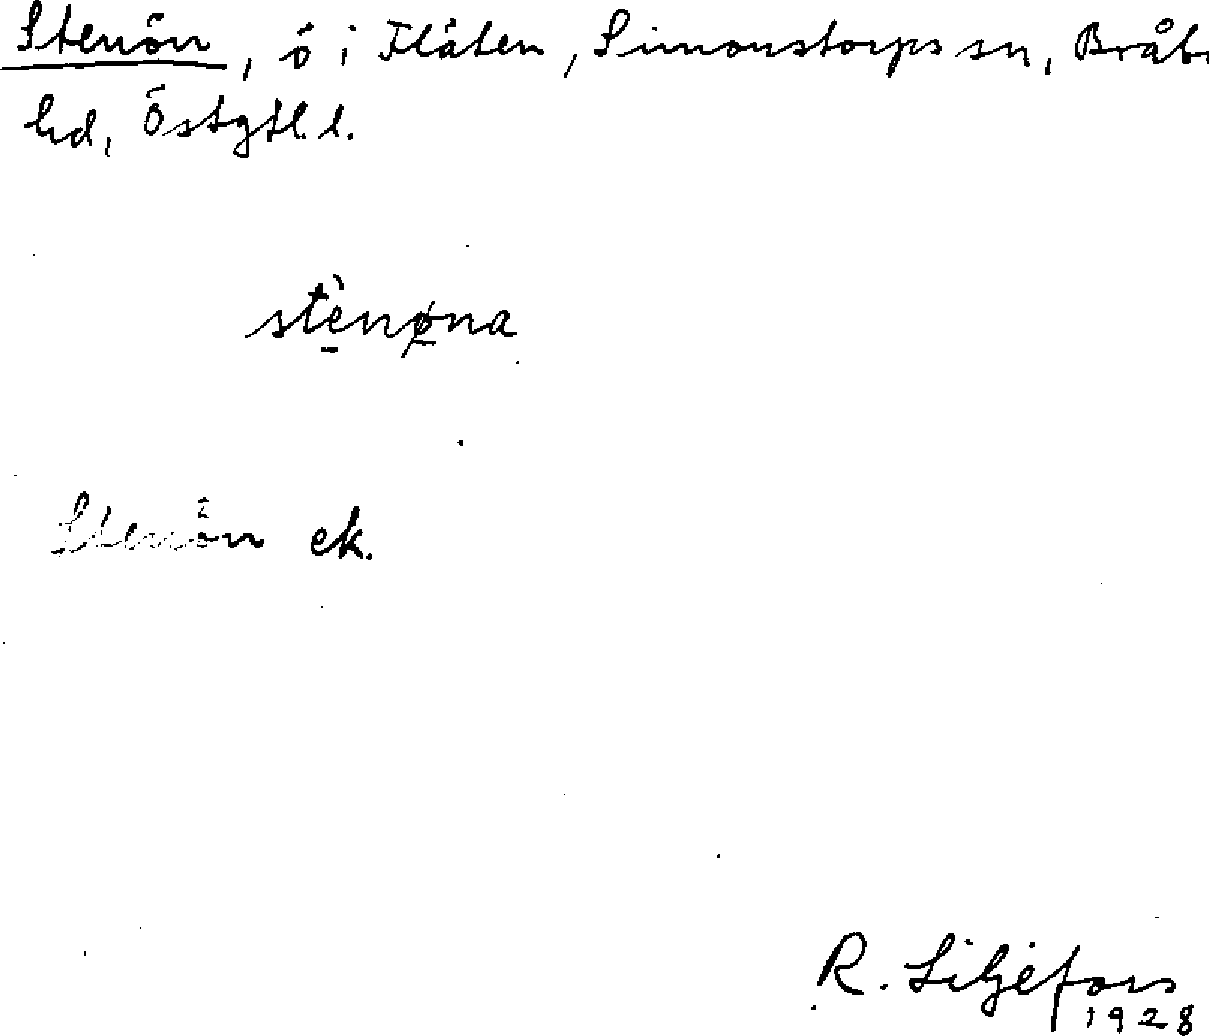 Stenön, ö i Fläten, Simonstorps sn, Bråb.
hd, Östgtl. l.
stènøna
Stenön ek.
R. Liljefors
1928